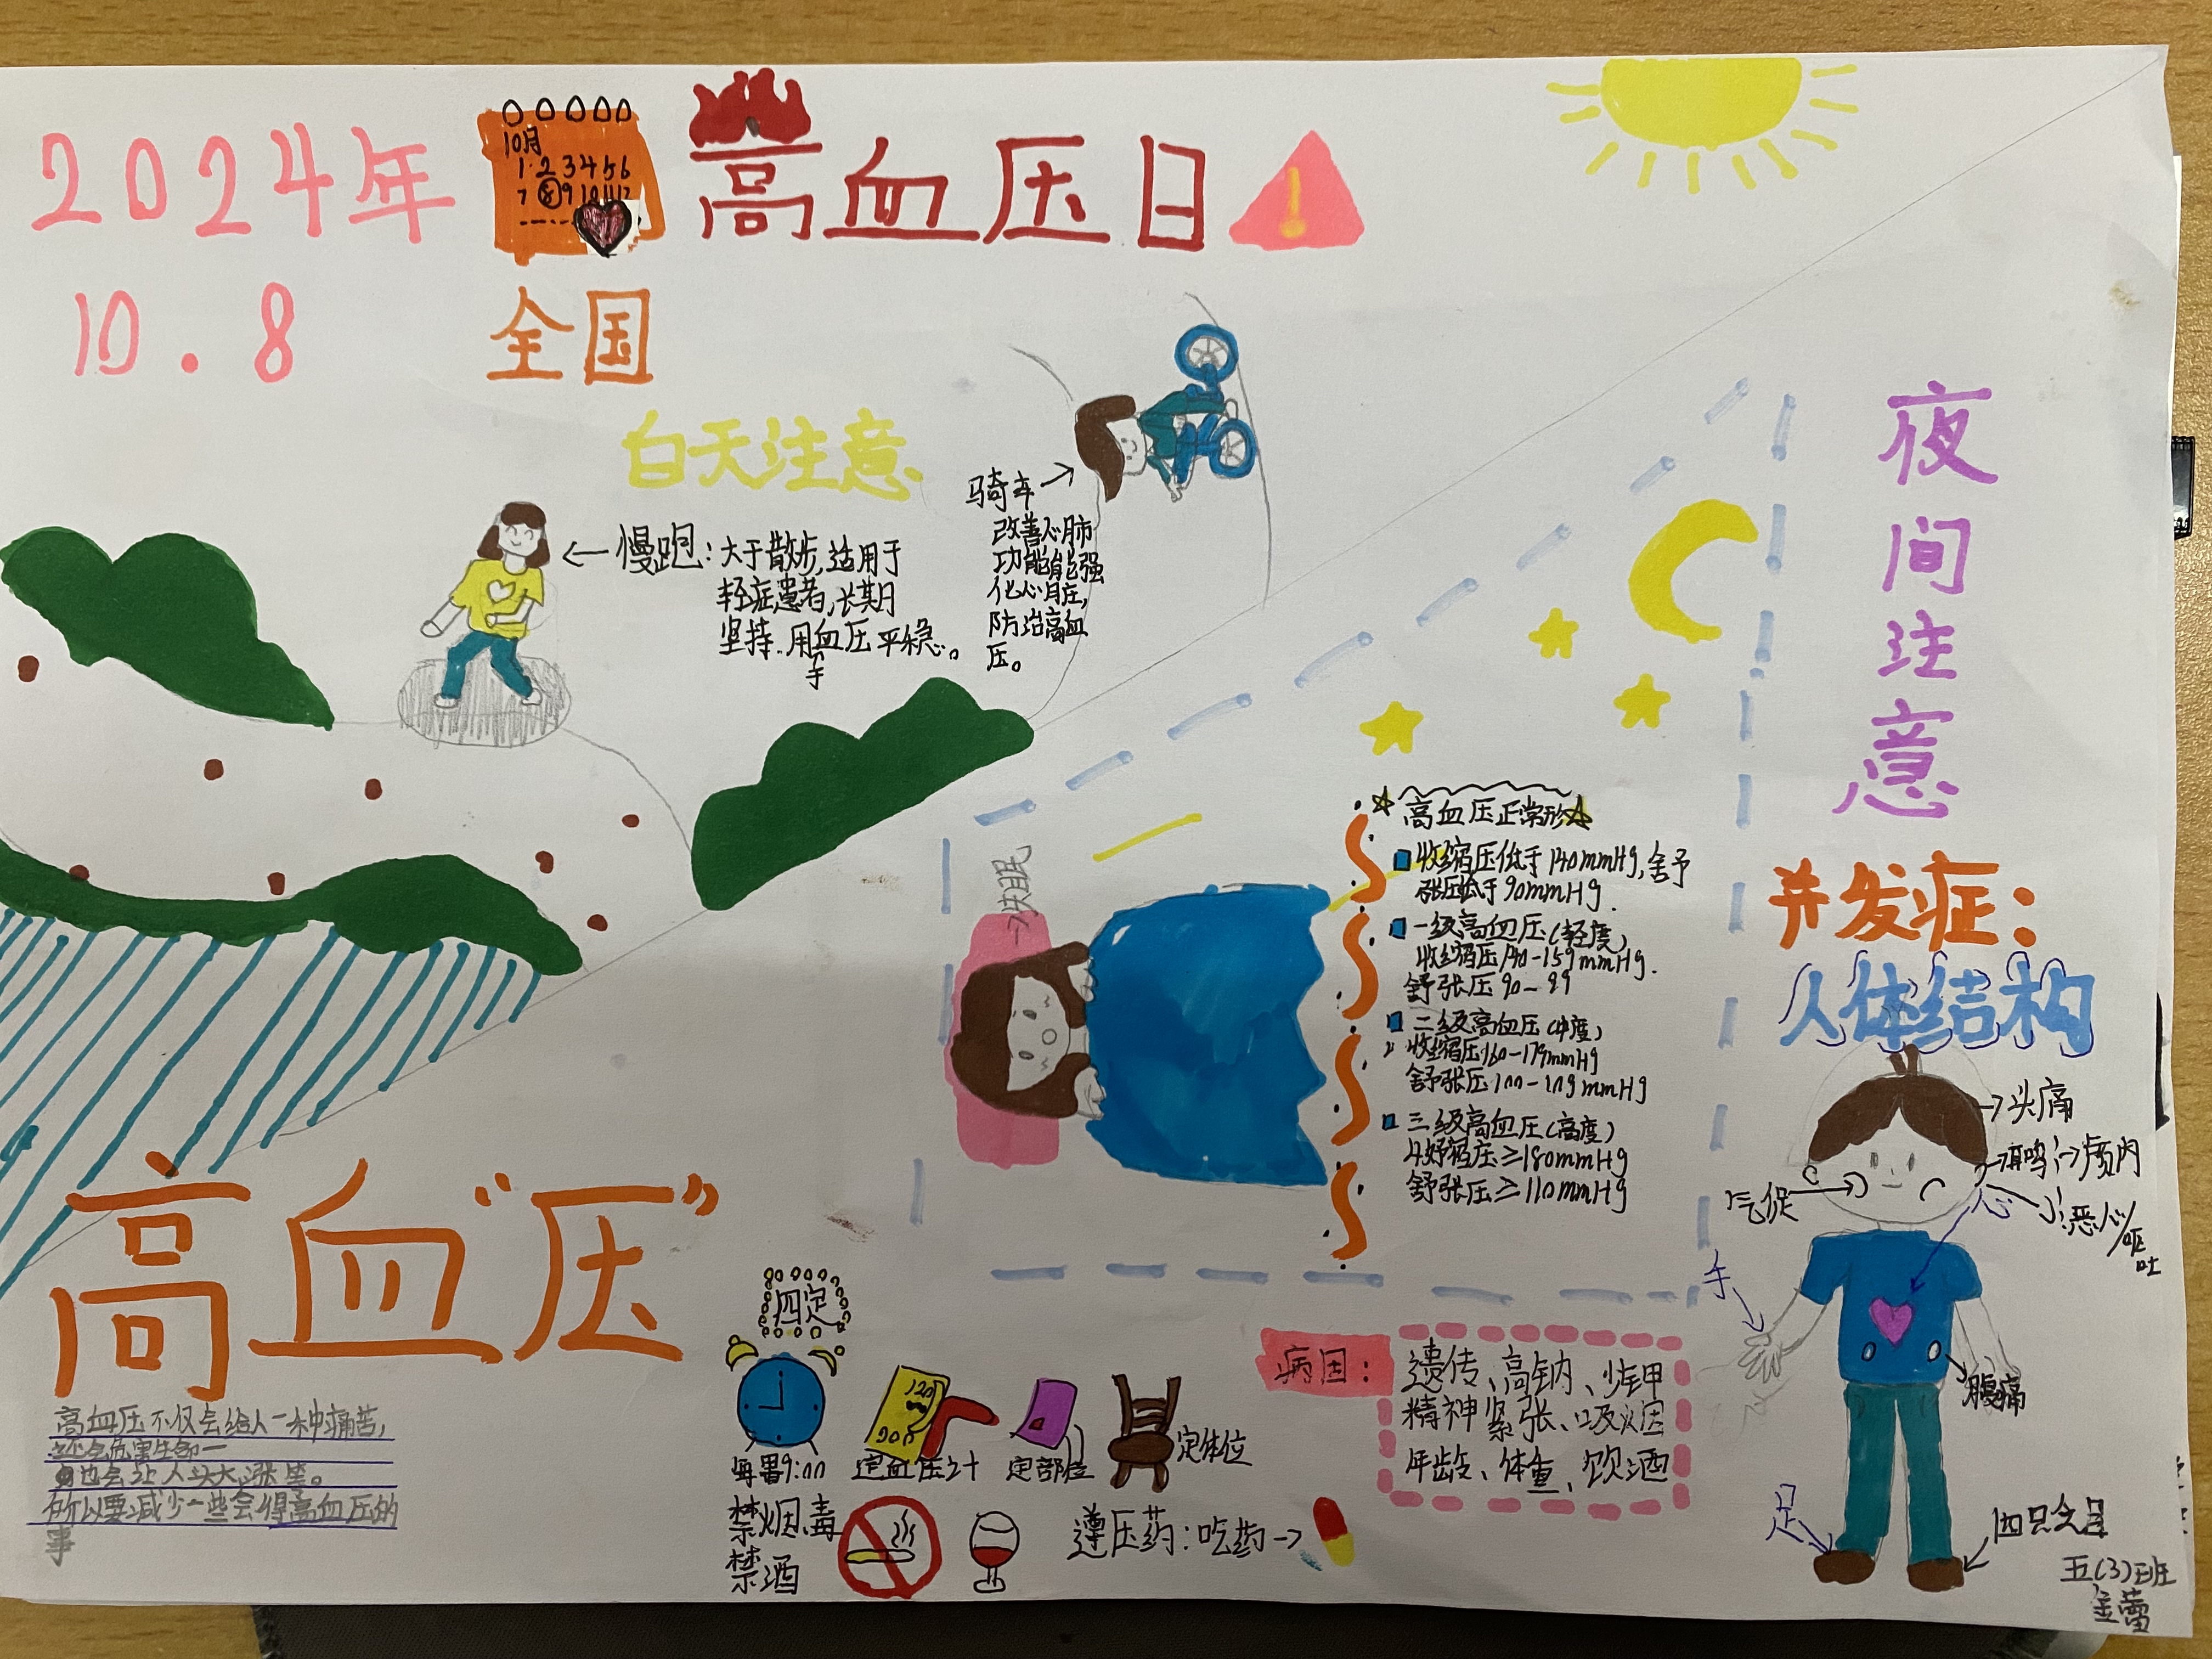 2024年
10.8
10月
1 2 3 4 5 6
7 8 9 10 11 12
高血压日
!
全国
白天注意
慢跑：大于散步，适用于
轻症患者，长期
坚持．用血压平稳。
于
骑车
改善心肺
功能能强
化心脏，
防治高血
压。
夜间注意
失眠
高血压正常形
收缩压低于140mmHg，舒
张压低于90mmHg．
一级高血压（轻度，
收缩压140-159mmHg．
舒张压90-99
二级高血压（中度，
收缩压160-179mmHg
舒张压100-109mmHg
三级高血压（高度）
缩压≥180mmHg
舒张压≥110mmHg
并发症：
人体结构
头痛
耳鸣
颅内
心
恶心/呕吐
气促
手
腹痛
足
高血“压”
高血压不仅会给人一种痛苦，
还会危害生命一
也会让人头大，涨
所以要减少一些会得高血压的
事
四定
每署9:00
定血压计
120
定部位
定体位
禁烟、毒
禁酒
遵压药：吃药→
病因：
遗传、高钠、少钾
精神紧张、吸烟
年龄、体重、饮酒
五(3)班
金蕾